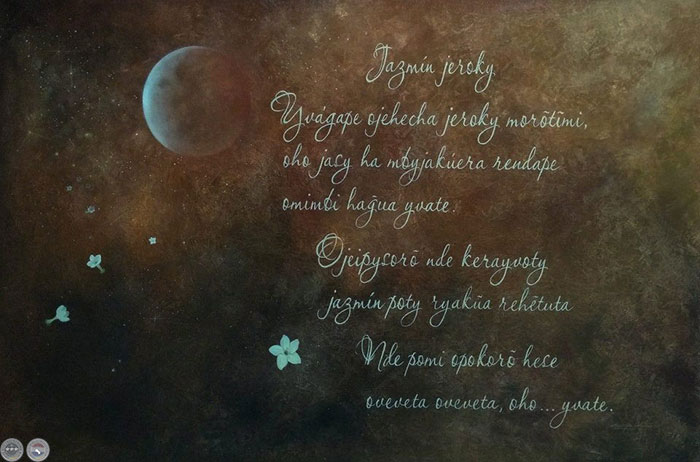 Jazmín jeroky
Yvágape ojehecha jeroky morõtĩmi,
oho jasy ha mbyjakúera rendape
omimbi hag̃ua yvate.
Ojeipysorõ nde kerayvoty
jazmín poty ryakũa rehẽtuta
Nde pomi opokorõ hese
oveveta oveveta, oho... yvate.